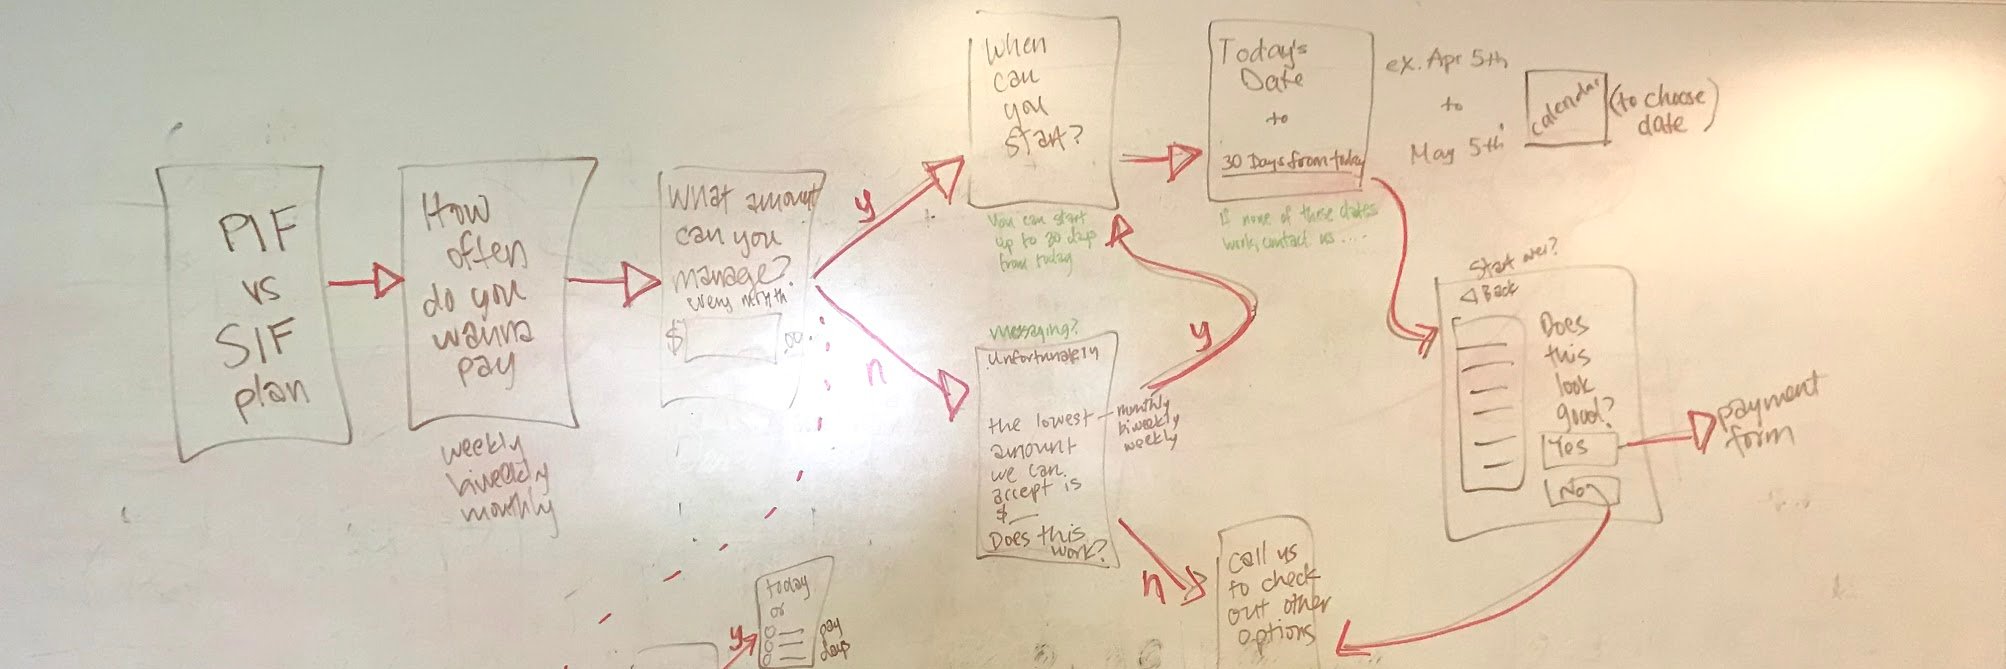 PIF
vs
SIF
plan
How
often
do you
wanna
pay
weekly
biweekly
monthly
What amount
can you
manage?
every month
$ .00
y
n
When
can
you
start?
You can start
up to 30 days
from today
Today's
Date
to
30 Days from today
If none of these dates
work, contact us ....
ex. Apr 5th
to
May 5th
calendar
(to choose
date)
messaging?
Unfortunately
the lowest
amount
we can
accept is
$__
Does this
work?
monthly
biweekly
weekly
y
n
Call us
to check
out other
options
Start over?
Back
Does
this
look
good?
Yes
No
payment
form
y
today
or
pay
days